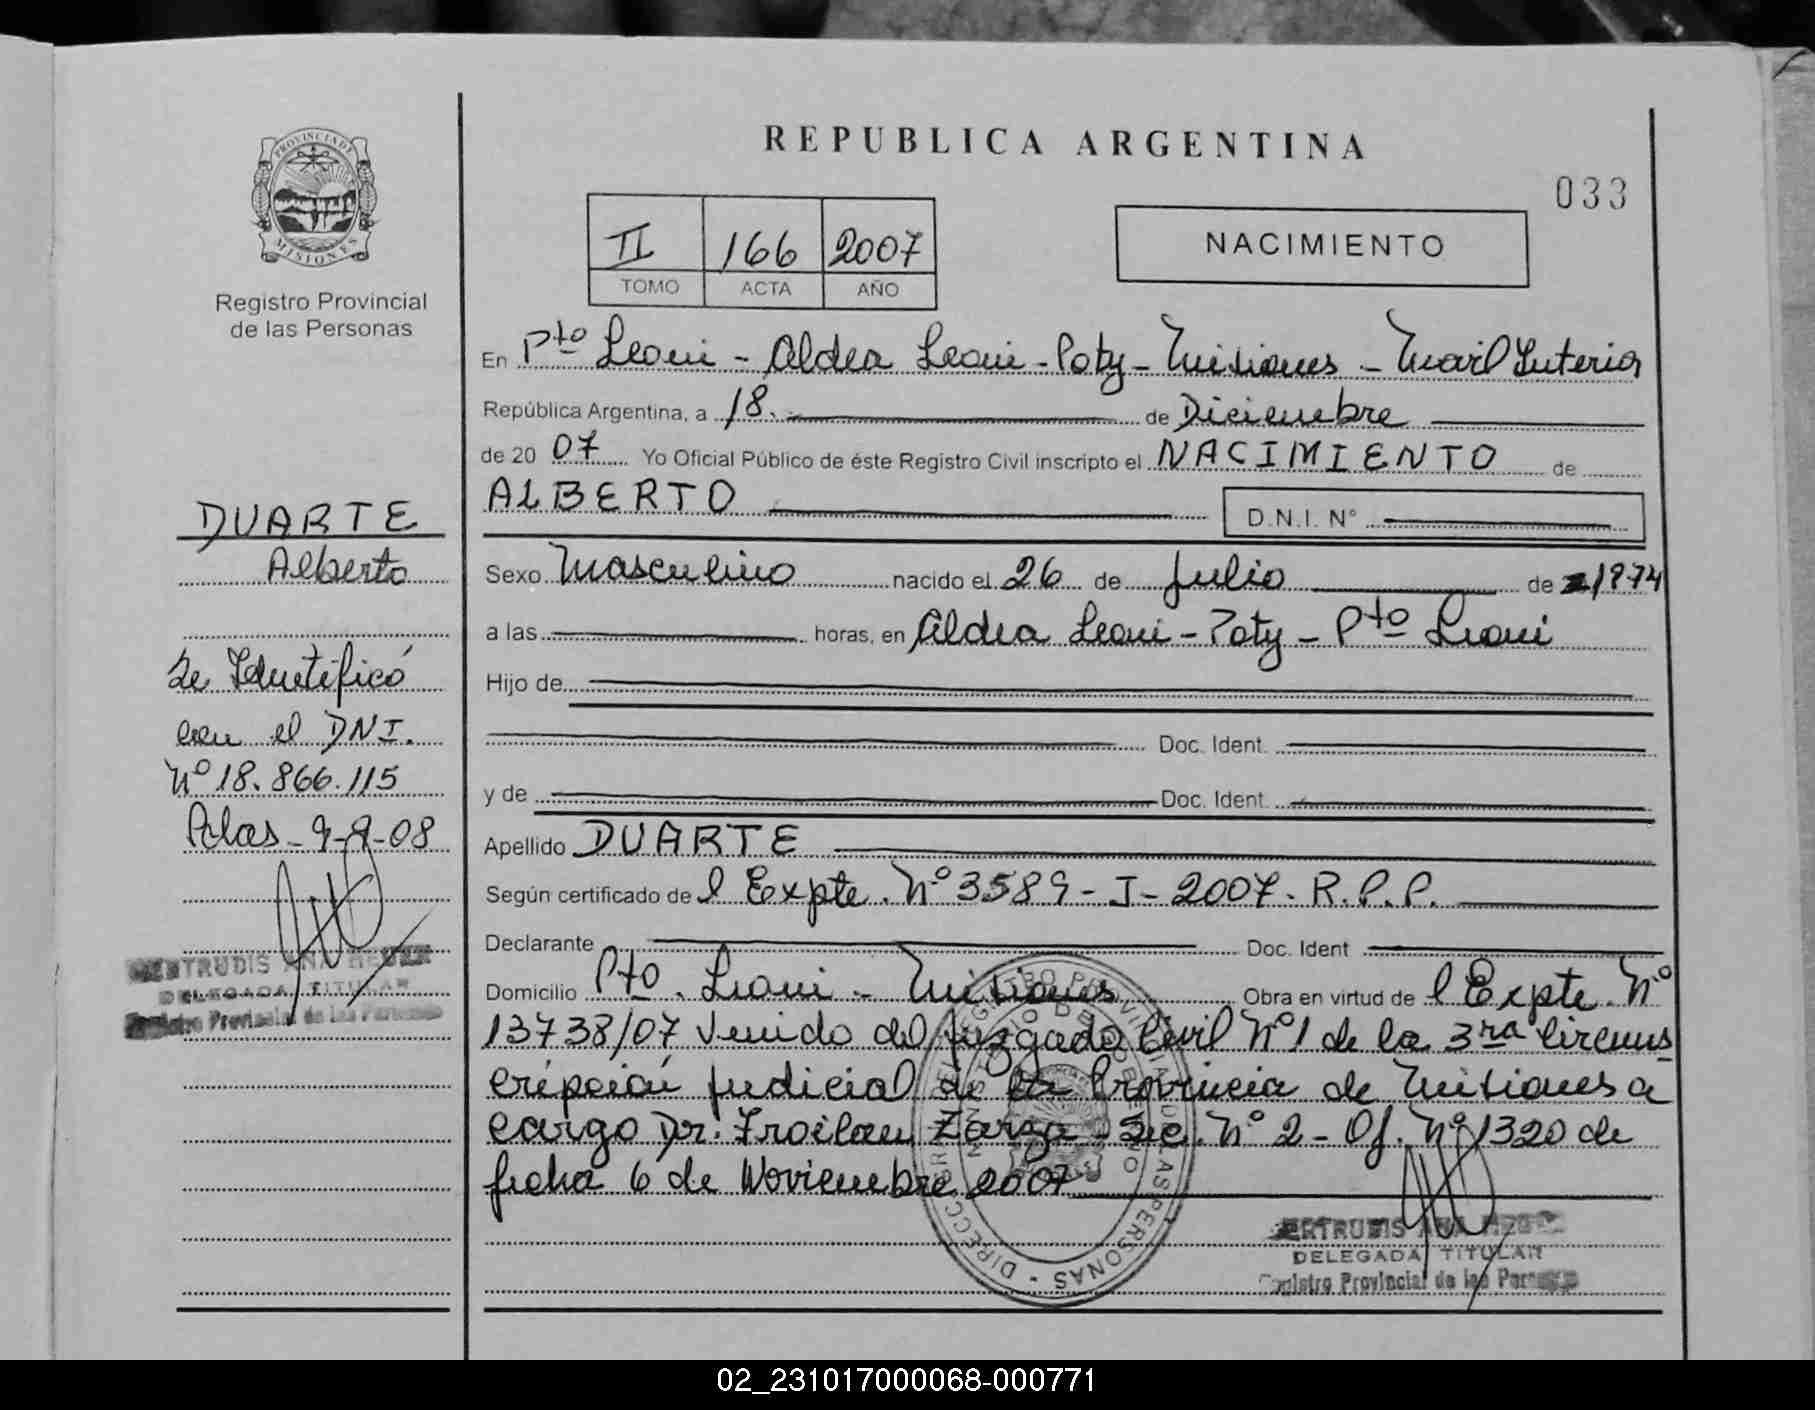 REPUBLICA ARGENTINA
033
PROVINCIA DE MISIONES
Registro Provincial
de las Personas
II 166 2007
TOMO ACTA AÑO
NACIMIENTO
En Pto Leoni - Aldea Leoni - Poty - Misiones - Movil Interior
República Argentina, a 18. de Diciembre
de 20 07 Yo Oficial Público de éste Registro Civil inscripto el NACIMIENTO de
ALBERTO D.N.I. N°
Sexo Masculino nacido el 26 de Julio de 1974
a las horas, en Aldea Leoni - Poty - Pto Leoni
Hijo de
Doc. Ident.
y de Doc. Ident.
Apellido DUARTE
Según certificado de l Expte. Nº 3589 - I - 2007 - R.P.P.
Declarante Doc. Ident
Domicilio Pto. Leoni - Misiones Obra en virtud de l Expte. Nº
13738/07 Venido del Juzgado Civil Nº 1 de la 3ra Circuns
cripción Judicial de la Provincia de Misiones a
cargo Dr. Froilan Zarza - Sec. Nº 2 - Of. Nº 1320 de
fecha 6 de Noviembre 2007
DUARTE
Alberto
Se Identificó
con el DNI.
Nº 18.866.115
9-9-08
GERTRUDIS ANA
DELEGADA TITULAR
Registro Provincial de las Personas
GERTRUDIS ANA
DELEGADA TITULAR
Registro Provincial de las Personas
02_231017000068-000771